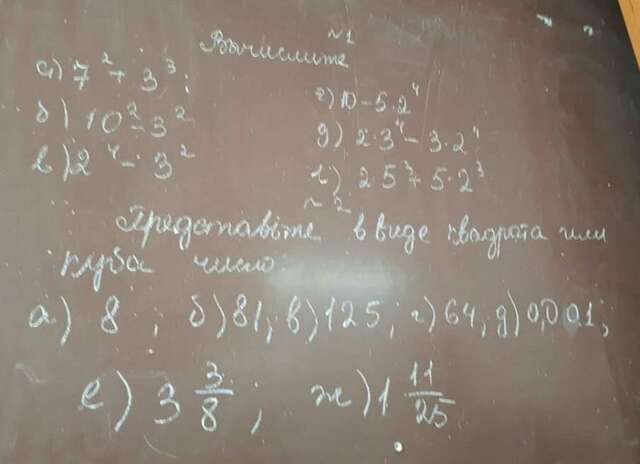 №1
Вычислите
а) 7² + 3³;
б) 10³ - 3²
в) 2⁴ - 3²
г) 10 - 5·2⁴
д) 2·3⁴ - 3·2⁴
е) 2·5³ + 5·2³
№2
Представьте в виде квадрата или
куба число:
а) 8; б) 81; в) 125; г) 64; д) 0,001;
е) 3 3/8; ж) 1 11/25